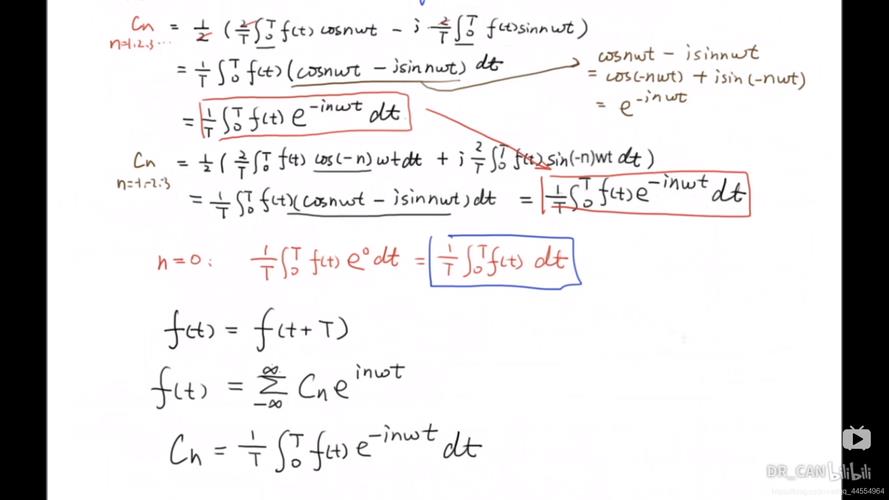 Cn = 1/2 ( 2/T ∫₀ᵀ f(t) cosnwt - i 2/T ∫₀ᵀ f(t) sinnwt )
n=1.2.3...
= 1/T ∫₀ᵀ f(t) (cosnwt - isinnwt) dt
cosnwt - isinnwt
= cos(-nwt) + isin(-nwt)
= e^-inwt
= 1/T ∫₀ᵀ f(t) e^-inwt dt
Cn = 1/2 ( 2/T ∫₀ᵀ f(t) cos(-n)wtdt + i 2/T ∫₀ᵀ f(t) sin(-n)wt dt )
n=-1.-2.-3
= 1/T ∫₀ᵀ f(t)(cosnwt - isinnwt)dt = 1/T ∫₀ᵀ f(t) e^-inwt dt
n=0: 1/T ∫₀ᵀ f(t) e⁰dt = 1/T ∫₀ᵀ f(t) dt
f(t) = f(t+T)
f(t) = ∑_-∞^∞ Cn e^inwt
Cn = 1/T ∫₀ᵀ f(t) e^-inwt dt
DR_CAN bilibili